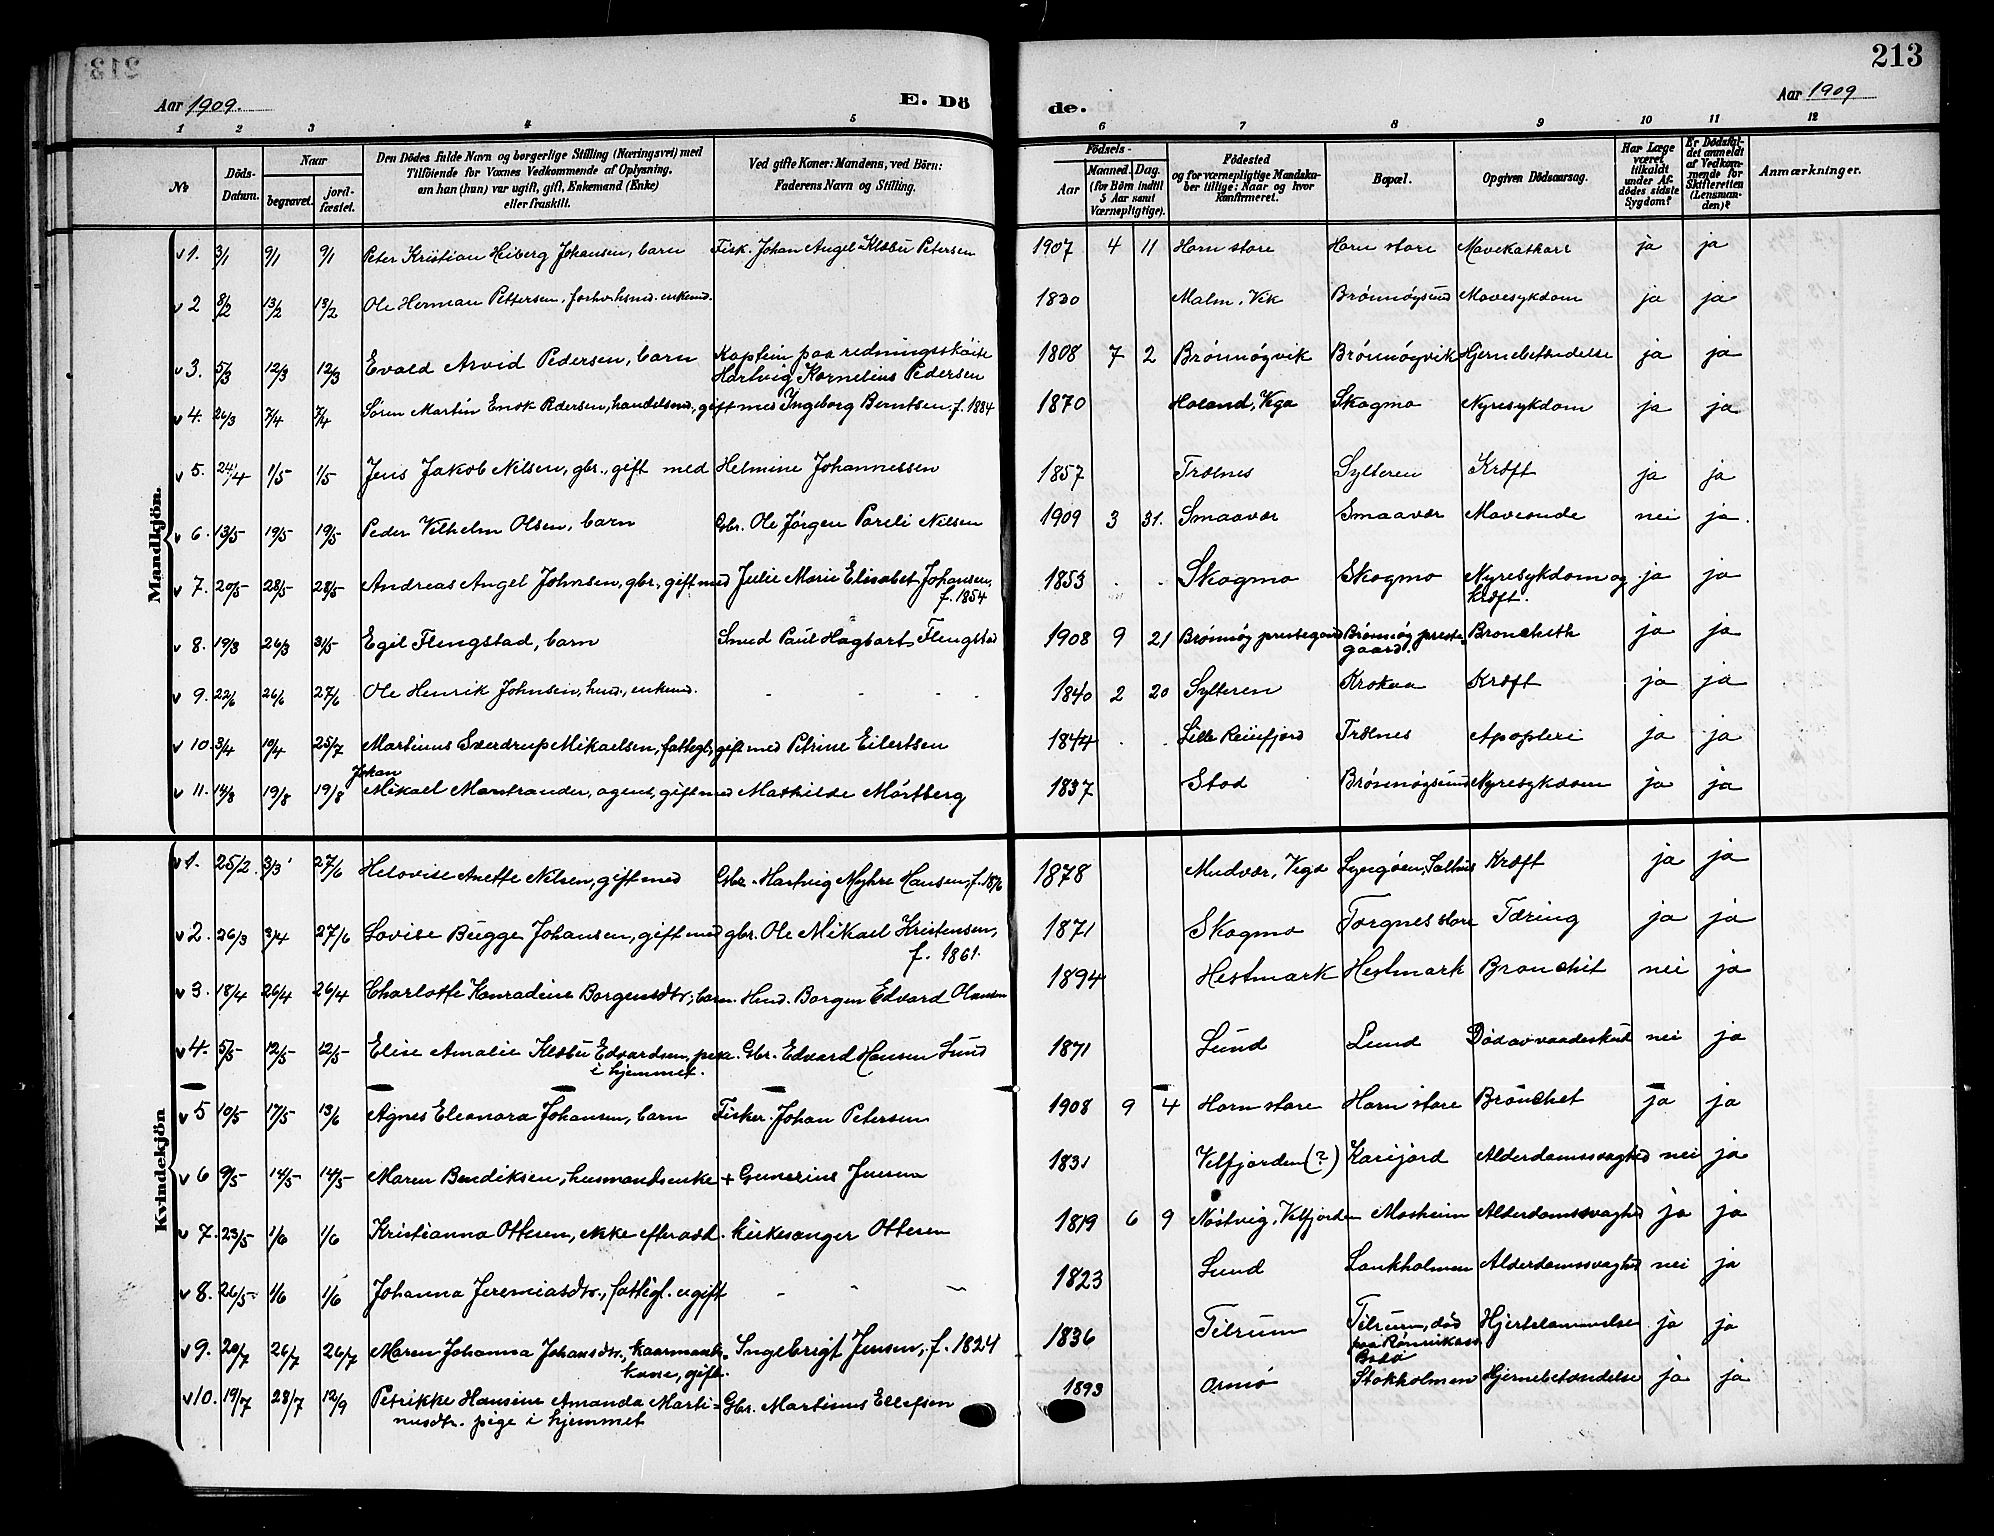 213
Aar 1909. E. Dö de. Aar 1909
1 2 3 4 5 6 7 8 9 10 11 12
No
Döds-Datum.
Naar
begravet.
jord-fæstet.
Den Dödes fulde Navn og borgerlige Stilling (Næringsvei) med
Tilföiende for Voxnes Vedkommende af Oplysning,
om han (hun) var ugift, gift, Enkemand (Enke)
eller fraskilt.
Ved gifte Koner: Mandens, ved Börn:
Faderens Navn og Stilling.
Födsels-
Aar
Maaned. Dag.
(for Börn indtil
5 Aar samt
Værnepligtige).
Födested
og for værnepligtige Mandska-
ber tillige: Naar og hvor
konfirmeret.
Bopæl.
Opgiven Dödsaarsag.
Har Læge
været
tilkaldt
under Af-
dödes sidste
Sygdom?
Er Dödsfal-
det anmeldt
af Vedkom-
mende for
Skifteretten
(Lensman-
den)?
Anmærkninger.
Mandkjön.
v 1. 3/1 9/1 9/1 Peter Kristian Heiberg Johansen, barn Fisk. Johan Angel Klæbu Petersen 1907 4 11 Horn store Horn store Mavekatharr ja ja
v 2 8/2 13/2 13/2 Ole Herman Pettersen, forhv. hsmd. enkemd. 1830 Malm, Vik Brönnöysund Mavesykdom ja ja
v 3. 5/3 12/3 12/3 Evald Arvid Pedersen, barn Kaptein paa redningsskøite
Hartvig Kornelius Pedersen 1808 7 2 Brönnöyvik Brönnöyvik Hjernebetændelse ja ja
v 4. 26/3 7/4 7/4 Sören Martin Enok Pedersen, handelsmd, gift med Ingeborg Berntsen, f. 1884 1870 Holand, Vega Skogmo Nyresykdom ja ja
v 5. 24/4 1/5 1/5 Jens Jakob Nilsen, gbr., gift med Helmine Johannessen 1857 Trælnes Sylteren Kræft ja ja
v 6. 13/5 19/5 19/5 Peder Vilhelm Olsen, barn Gbr. Ole Jörgen Pareli Nilsen 1909 3 31. Smaavær Smaavær Maveonde nei ja.
v 7. 20/5 28/5 28/5 Andreas Angel Johnsen, gbr., gift med Julie Marie Elisabet Johansen,
f. 1854 1853 Skogmo Skogmo Nyresykdom og
kræft. ja ja
v 8. 19/3 26/3 31/5 Egil Flengstad, barn Smed Paul Hagbart Flengstad 1908 9 21 Brönnöy prestegaard Brönnöy preste-
gaard. Bronchith ja ja
v 9. 22/6 26/6 27/6 Ole Henrik Johnsen, husd., enkemd. - - - 1840 2 20 Sylteren Krokaa Kræft ja ja
v 10. 3/4 10/4 25/7 Martinus Sverdrup Mikaelsen, fattigl., gift med Petrine Eilertsen 1844 Lille Reinfjord Trælnes Apoplexi ja ja
Johan
v 11. 14/8 19/8 19/8 Mikael Monstrander, agent, gift med Mathilde Mörtberg 1837 Stod Brönnöysund Nyresykdom ja ja
Kvindekjön
v 1. 25/2. 3/3 27/6 Helovise Anette Nilsen, gift med Gbr. Hartvig Myhre Hansen, f. 1876 1878 Mudvær, Vega Lyngöen, Salhus Kræft ja ja
v 2. 26/3 3/4 27/6 Lovise Bugge Johansen, gift med gbr. Ole Mikael Kristensen,
f. 1861. 1871 Skogmo Torgnes store Tæring ja ja
v 3. 18/4 26/4 26/4 Charlotte Konradine Borgensdtr, barn. Husd. Borgen Edvard Olausen 1894 Hestmark Hestmark Bronchit nei ja
v 4. 5/5 12/5 12/5 Elise Amalie Klæbu Edvardsen, pike
i hjemmet. Gbr. Edvard Hansen Lund 1871 Lund Lund Död av vaadeskud nei ja
v 5 10/5 17/5 13/6 Agnes Eleonora Johansen, barn Fisker Johan Petersen 1908 9 4 Horn store Horn store Bronchet ja ja
v 6 9/5 14/5 14/5 Maren Bendiksen, husmandsenke + Gunerius 1831 Velfjorden (?) Karijord Alderdomssvaghed nei ja
v 7. 23/5 1/6 1/6 Kristianna Ottesen, enke efter avd. kirkesanger Ottesen 1819 6 9 Nöstvig, Velfjorden Mosheim Alderdomssvaghed ja ja
v 8. 26/5 1/6 1/6 Johanna Jeremiasdtr., fattigl. ugift - - - 1823 Lund Lankholmen Alderdomssvaghed nei ja
v 9. 20/7 26/7 26/7 Maren Johanna Johansdtr., kaarmands-
kone, gift. Ingebrigt Jensen, f. 1824 1836 Tilrum Tilrum, död
paa
Bodö Hjertelammelse ja ja
v 10. 19/7 28/7 12/9 Petrikke Hansine Amanda Marti-
nusdtr. pige i hjemmet Gbr. Martinus Ellefsen 1893 Ormö Stokholmen Hjernebetændelse ja ja